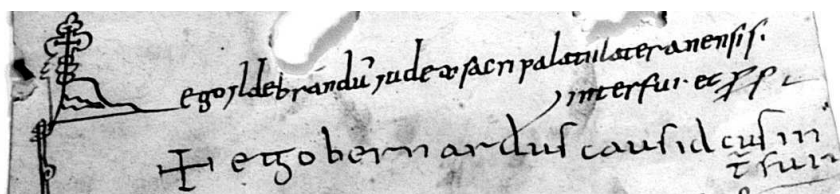 ego jldebrandus judex sacri palatii lateranensis.
interfui et ss
+ ego bernardus causidicus in
terfui